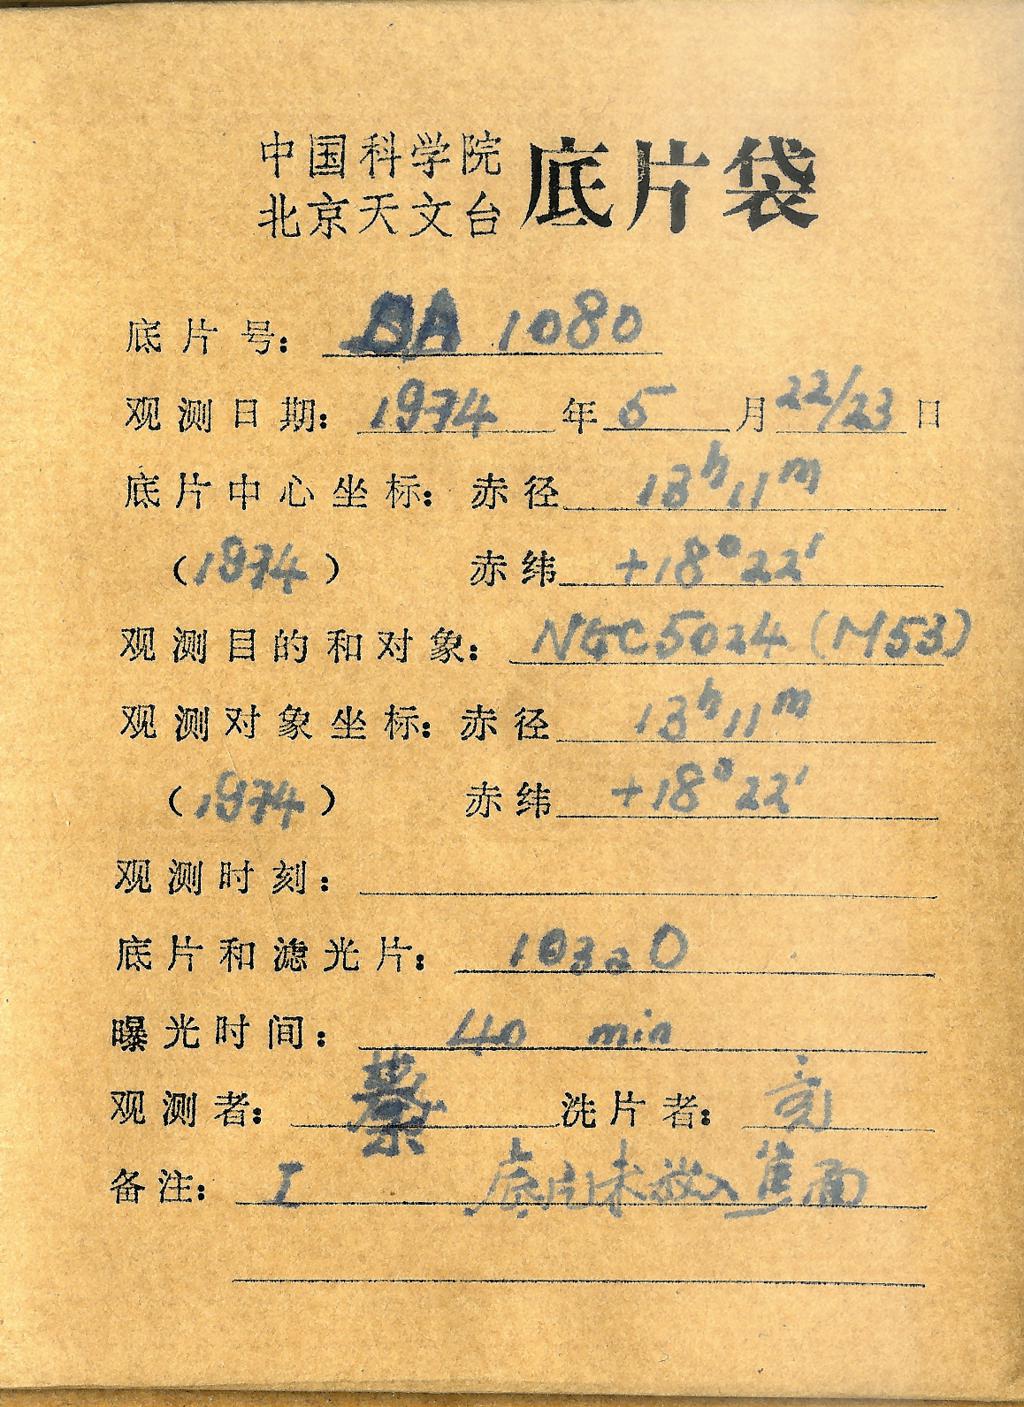 中国科学院
北京天文台 底片袋
底片号: BA 1080
观测日期: 1974 年 5 月 22/23 日
底片中心坐标: 赤径 13h11m
(1974) 赤纬 +18°22'
观测目的和对象: NGC5024 (M53)
观测对象坐标: 赤径 13h11m
(1974) 赤纬 +18°22'
观测时刻:
底片和滤光片: 103aO
曝光时间: 40 min
观测者: 蔡 洗片者:
备注: I 底片未放入焦面